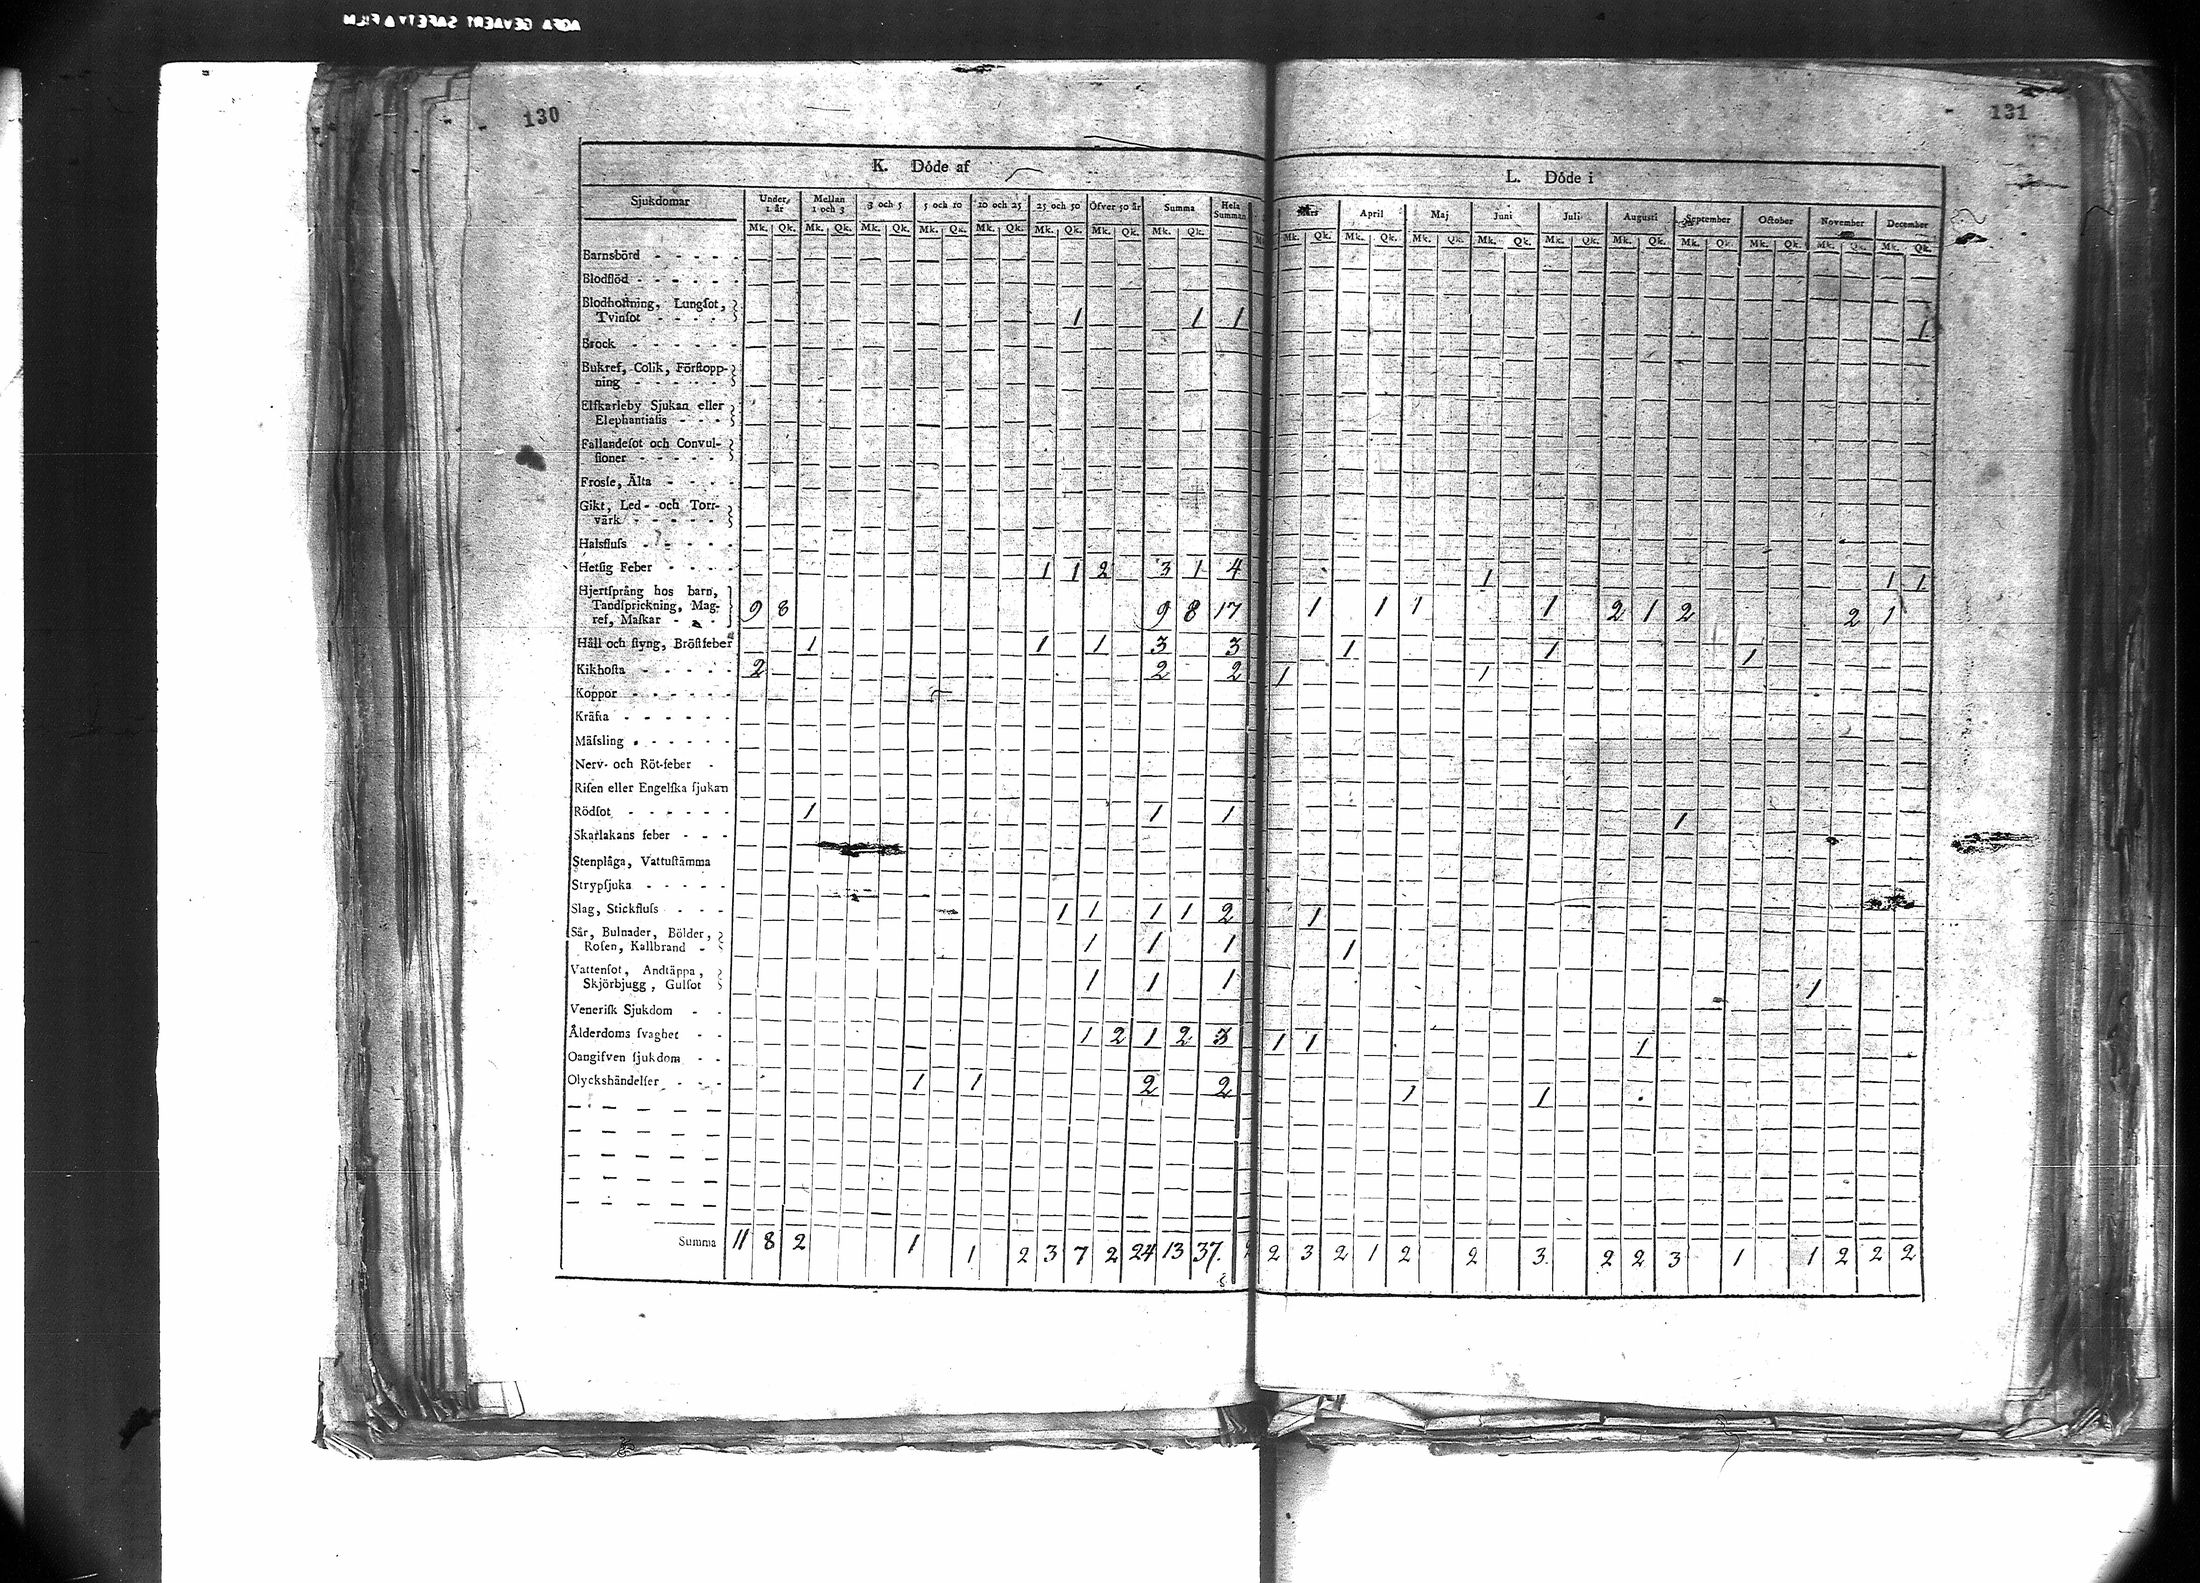 AGFA GEVAERT SAFETY FILM
130
131
K. Döde af
L. Döde i
Sjukdomar Under 1 år Mellan 1 och 3 3 och 5 5 och 10 10 och 25 25 och 50 Öfver 50 år Summa Hela Summan
Mars April Maj Juni Juli Augusti September October November December
Mk. Qk. Mk. Qk. Mk. Qk. Mk. Qk. Mk. Qk. Mk. Qk. Mk. Qk. Mk. Qk.
Mk. Qk. Mk. Qk. Mk. Qk. Mk. Qk. Mk. Qk. Mk. Qk. Mk. Qk. Mk. Qk. Mk. Qk. Mk. Qk.
Barnsbörd - - - - -
Blodflöd - - - - - -
Blodhoſtning, Lungſot,
Tvinſot - - - - 1 1 1 1
Brock - - - - - -
Bukref, Colik, Förſtopp-
ning - - - - -
Elfkarleby Sjukan eller
Elephantiaſis - - -
Fallandeſot och Convul-
ſioner - - - - -
Frosſe, Älta - - - -
Gikt, Led- och Torr-
värk - - - - -
Halsfluſs - - - - -
Hetſig Feber - - - - 1 1 2 3 1 4 1 1 1
Hjertſprång hos barn,
Tandſprickning, Mag-
ref, Maſkar - - 9 8 9 8 17 1 1 1 1 2 1 2 2 1
Håll och ſtyng, Bröſtfeber 1 1 1 3 3 1 1 1
Kikhoſta - - - - - 2 2 2 1 1
Koppor - - - - - -
Kräfta - - - - - -
Mäſsling - - - - - -
Nerv- och Röt-feber -
Riſen eller Engelſka ſjukan
Rödſot - - - - - - 1 1 1 1
Skarlakans feber - - -
Stenplåga, Vattuſtämma
Strypſjuka - - - - -
Slag, Stickfluſs - - - 1 1 1 1 2 1
Sår, Bulnader, Bölder,
Roſen, Kallbrand - 1 1 1 1
Vattenſot, Andtäppa,
Skjörbjugg, Gulſot 1 1 1 1
Veneriſk Sjukdom - -
Ålderdoms ſvaghet - - 1 2 1 2 3 1 1 1
Oangifven ſjukdom - -
Olyckshändelſer - - - 1 1 2 2 1 1
Summa 11 8 2 1 1 2 3 7 2 24 13 37. 2 3 2 1 2 2 3. 2 2 3 1 1 2 2 2